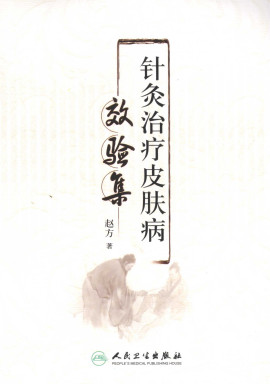 针灸治疗皮肤病
效验集
赵方 著
人民卫生出版社
PEOPLE'S MEDICAL PUBLISHING HOUSE